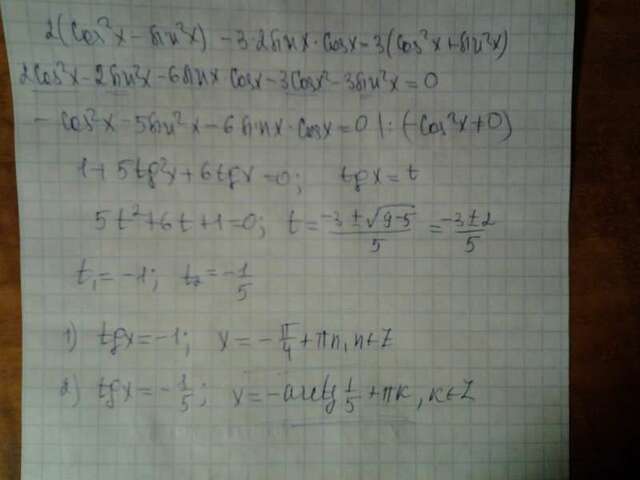 2(cos²x - sin²x) - 3·2sinx·cosx - 3(cos²x + sin²x)
2cos²x - 2sin²x - 6sinx cosx - 3cosx² - 3sin²x = 0
- cos²x - 5sin²x - 6sinx·cosx = 0 |:(-cos²x ≠ 0)
1 + 5tg²x + 6tgx = 0; tgx = t
5t² + 6t + 1 = 0; t = (-3 ± √(9-5))/5 = (-3 ± 2)/5
t₁ = -1; t₂ = -1/5
1) tgx = -1; x = -π/4 + πn, n∈Z
2) tgx = -1/5; x = -arctg 1/5 + πк, к∈Z